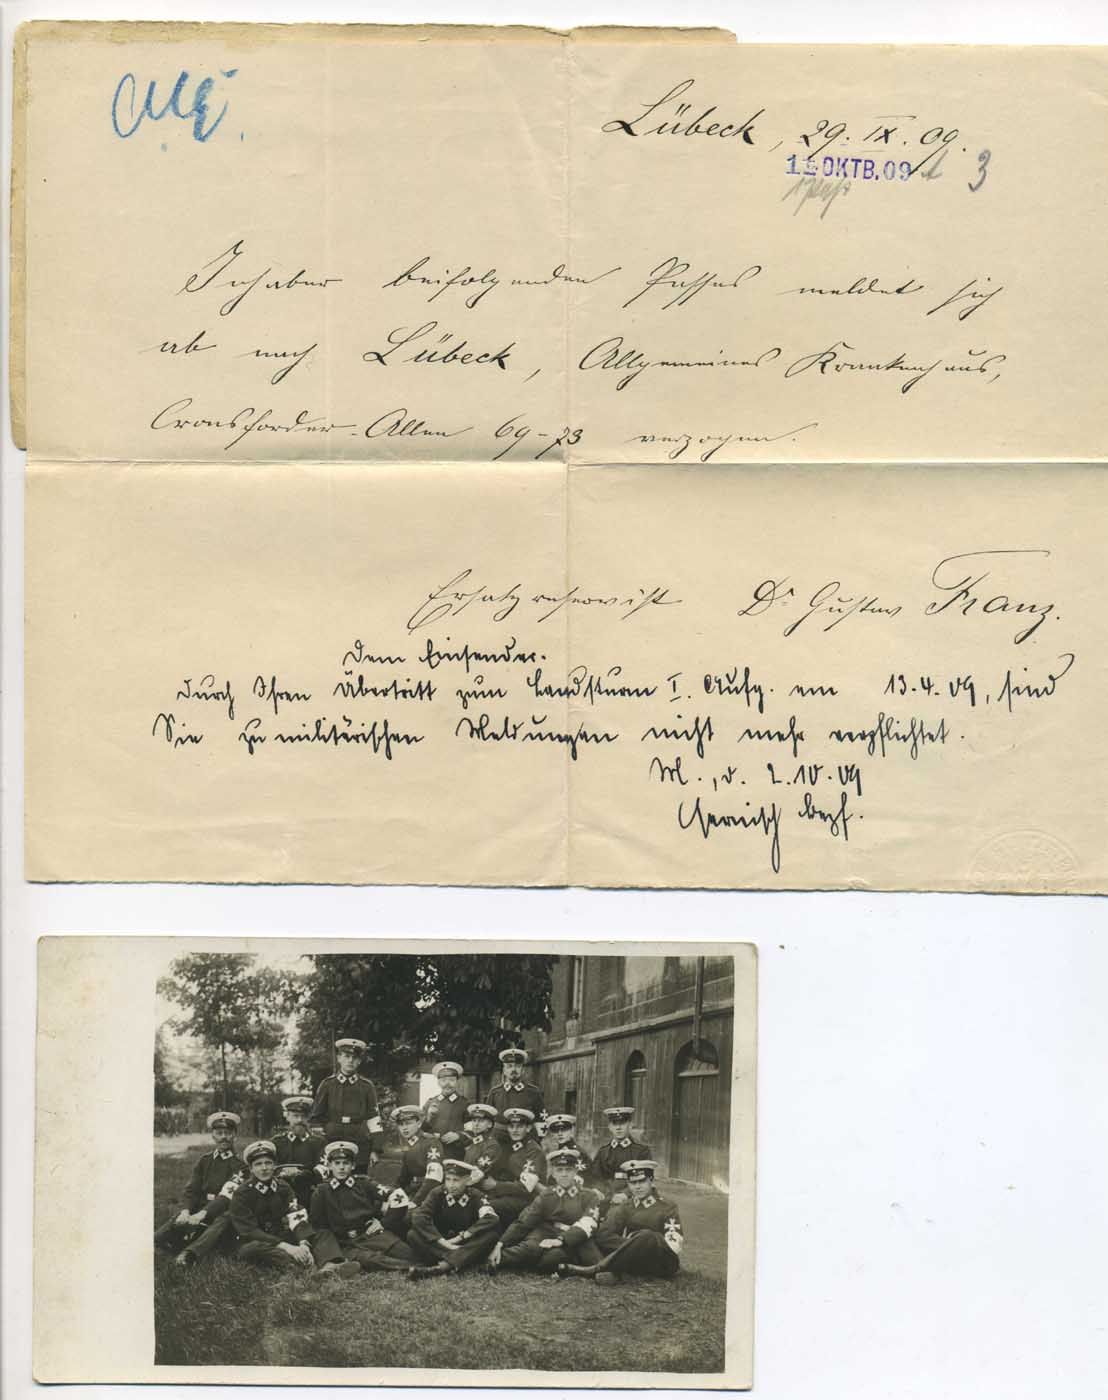 Lübeck, 29. IX. 09.
1 OKTB. 09
3
Inhaber beifolgenden Passes meldet sich
ab nach Lübeck, Allgemeines Krankenhaus,
Cronsforder-Allee 69-73 verzogen.
Ersatzreservist Dr Gustav Franz.
Dem Einsender.
Durch Ihren Übertritt zum Landsturm I. Aufg. am 13.4.09, sind
Sie zu militärischen Meldungen nicht mehr verpflichtet.
M., d. 2.10.09